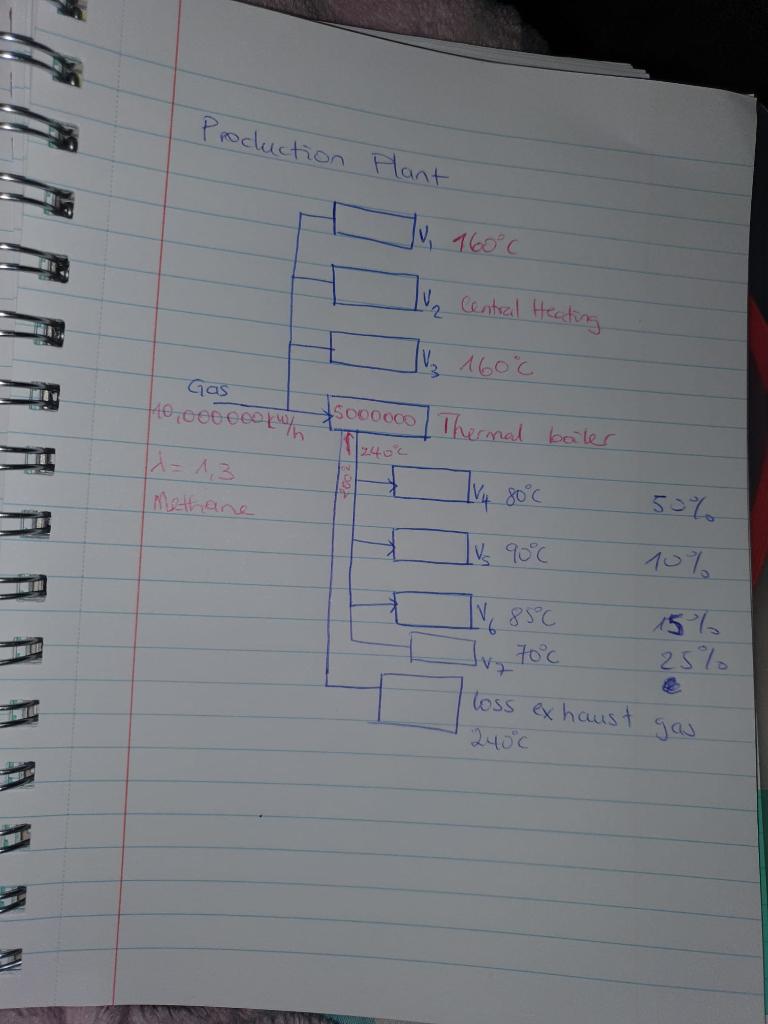 Production Plant
V1 160°C
V2 Central Heating
V3 160°C
Gas
10,000000kW/h
5000000 Thermal boiler
240°C
λ = 1,3
Methane
V4 80°C 50%
V5 90°C 10%
V6 85°C 15%
V7 70°C 25%
loss exhaust gas
240°C